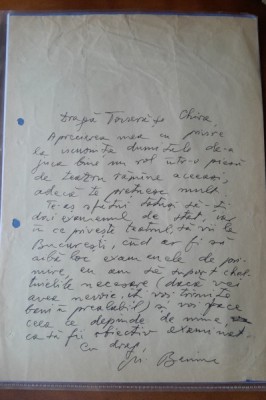 Dragă Tovarășe Chira,
Aprecierea mea cu privire
la ușurința dumitale de-a
juca bine un rol într-o piesă
de teatru rămîne aceeași,
adecă te prețuesc mult.
Te-aș sfătui totuși să-ți
dai examenul de stat, iar
în ce privește teatrul, să vii la
București, cînd ar fi să
aibă loc examenele de pri-
mire, eu am să suport chel-
tuelile necesare (dacă vei
avea nevoie, îți voi trimite
bani prealabil) și voi face
ceea ce depinde de mine
ca să fii obiectiv examinat.
Cu drag,